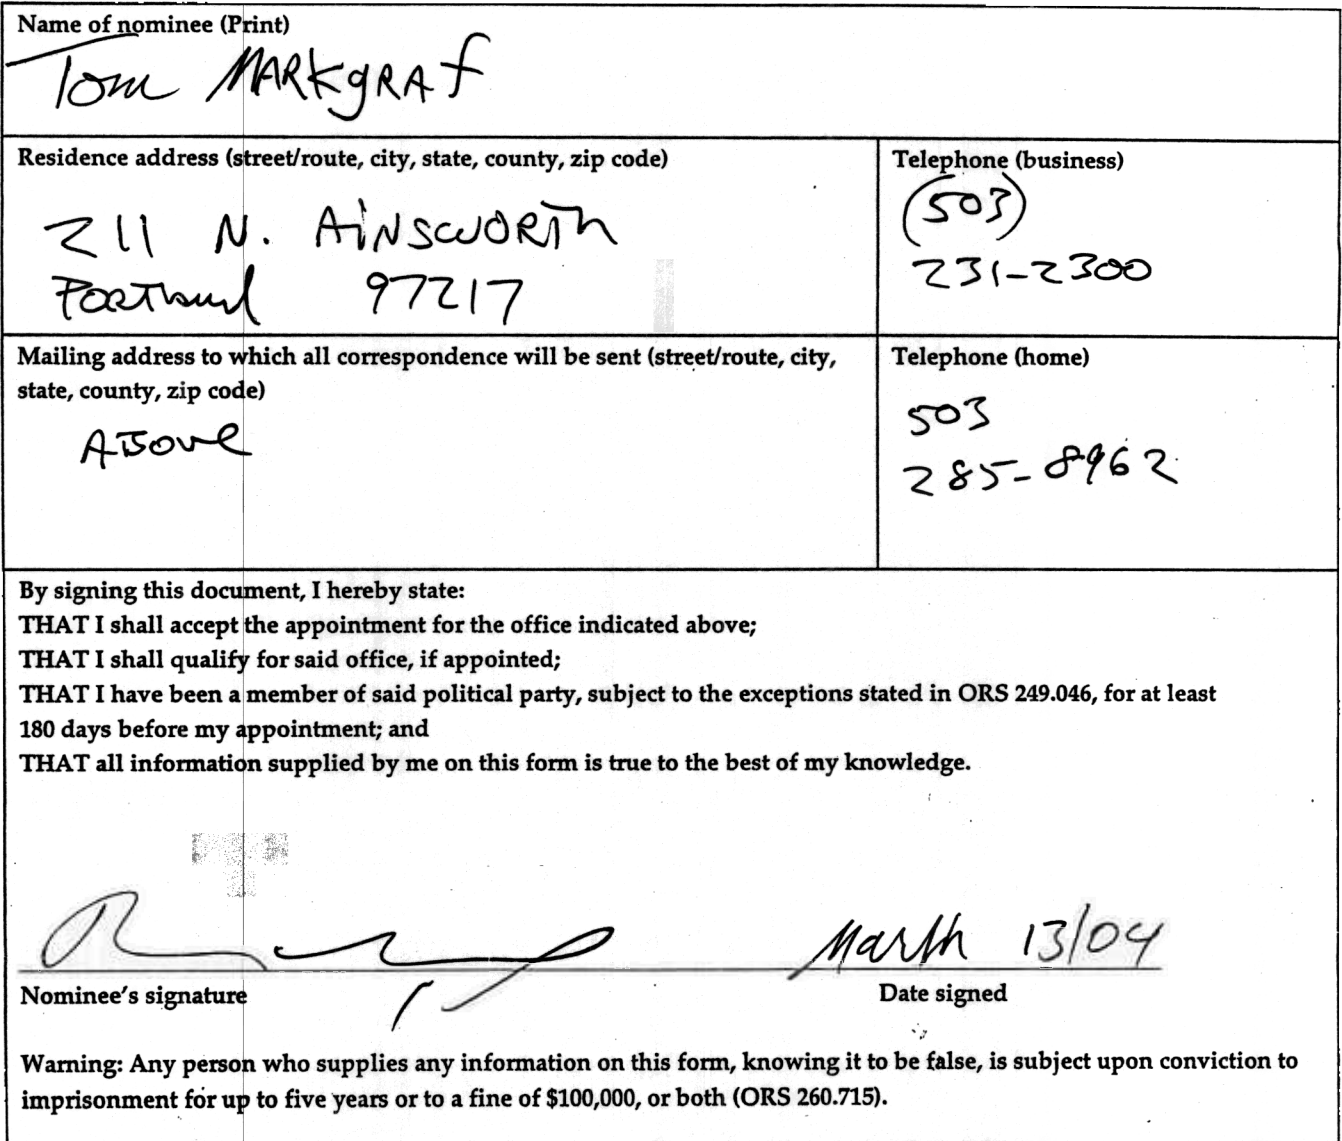 Name of nominee (Print)
Tom MARKgRAf
Residence address (street/route, city, state, county, zip code)
211 N. AiNSWORTh
Portland 97217
Telephone (business)
(503)
231-2300
Mailing address to which all correspondence will be sent (street/route, city,
state, county, zip code)
Above
Telephone (home)
503
285-8962
By signing this document, I hereby state:
THAT I shall accept the appointment for the office indicated above;
THAT I shall qualify for said office, if appointed;
THAT I have been a member of said political party, subject to the exceptions stated in ORS 249.046, for at least
180 days before my appointment; and
THAT all information supplied by me on this form is true to the best of my knowledge.
March 13/04
Nominee's signature
Date signed
Warning: Any person who supplies any information on this form, knowing it to be false, is subject upon conviction to
imprisonment for up to five years or to a fine of $100,000, or both (ORS 260.715).